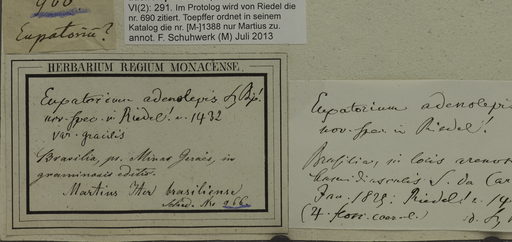 VI(2): 291. Im Protolog wird von Riedel die
nr. 690 zitiert. Toepffer ordnet in seinem
Katalog die nr. [M-]1388 nur Martius zu.
annot. F. Schuhwerk (M) Juli 2013
Eupatorium?
HERBARIUM REGIUM MONACENSE.
Eupatorium adenolepis Sz Bip!
nov. spec. in Riedel! n. 1432
var. gracilis
Brasilia, pr. Minas Geraës, in
graminosis editis.
Martius Iter brasiliense
Sched. No 266
Eupatorium adenolepis
nov. spec. in Riedel!
Brasilia, in locis arenos
S. da Car
Jan. 1825. Riedel! n.